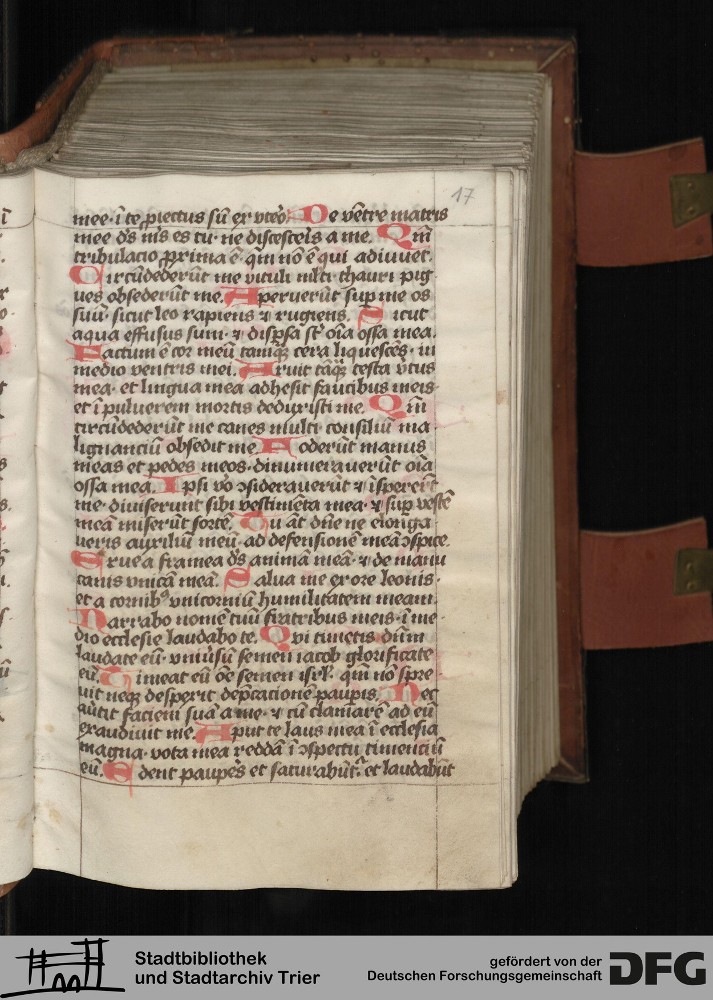 17
mee · ī te ꝓiectus sū ex vteͦ. De vētre matris
mee dˢ mˢ es tu · ne discesseis a me. Qm̄
tribulacio ꝓxima ē · qm̄ nō ē qui adiuuet.
Circūdederūt me vituli mlti · thauri pig
ues obsederūt me. Aperuerūt sup me os
suū · sicut leo rapiens ⁊ rugiens. Sicut
aqua effusus sum · ⁊ dispsa st̄ oīa ossa mea.
Factum ē cor meū tamqꝫ cera liquescēs · in
medio ventris mei. Aruit tāqꝫ testa v̄tus
mea · et lingua mea adhesit faucibus meis ·
et ī puluerem mortis deduxisti me. Qm̄
circūdederūt me canes multi · consiliū ma
lignanciū obsedit me. Foderūt manus
meas et pedes meos · dinumerauerūt oīa
ossa mea. Ipsi vͦo ↄsiderauerūt ⁊ īspexeīt
me · diuiserunt sibi vestimēta mea · ⁊ sup vestē
meā miserūt sortē. Tu āt dn̄e ne elonga
ueris auxiliū meū · ad defensionē meā ↄspice.
Erue a framea dˢ animā meā · ⁊ de manu
canis vnicā meā. Salua me ex ore leonis ·
et a cornibꝫ vnicorniū humilitatem meam.
Narrabo nomē tuū fratribus meis · ī me
dio ecclesie laudabo te. Qui timetis dūm
laudate eū · vniūsū semen iacob glorificate
eū. Timeat eū ōe semen isrl̄ · qm̄ nō spre
uit neqꝫ despexit dep̄cacionē paupis. Nec
au̇tit faciem suā a me · ⁊ cū clamarē ad eū
exaudiuit me. Aput te laus mea ī ecclesia
magna · vota mea reddā ī ↄspectu timenciū
eū. Edent paupeˢ et saturabūt᷑ · et laudabūt
Stadtbibliothek
und Stadtarchiv Trier
gefördert von der
Deutschen Forschungsgemeinschaft
DFG